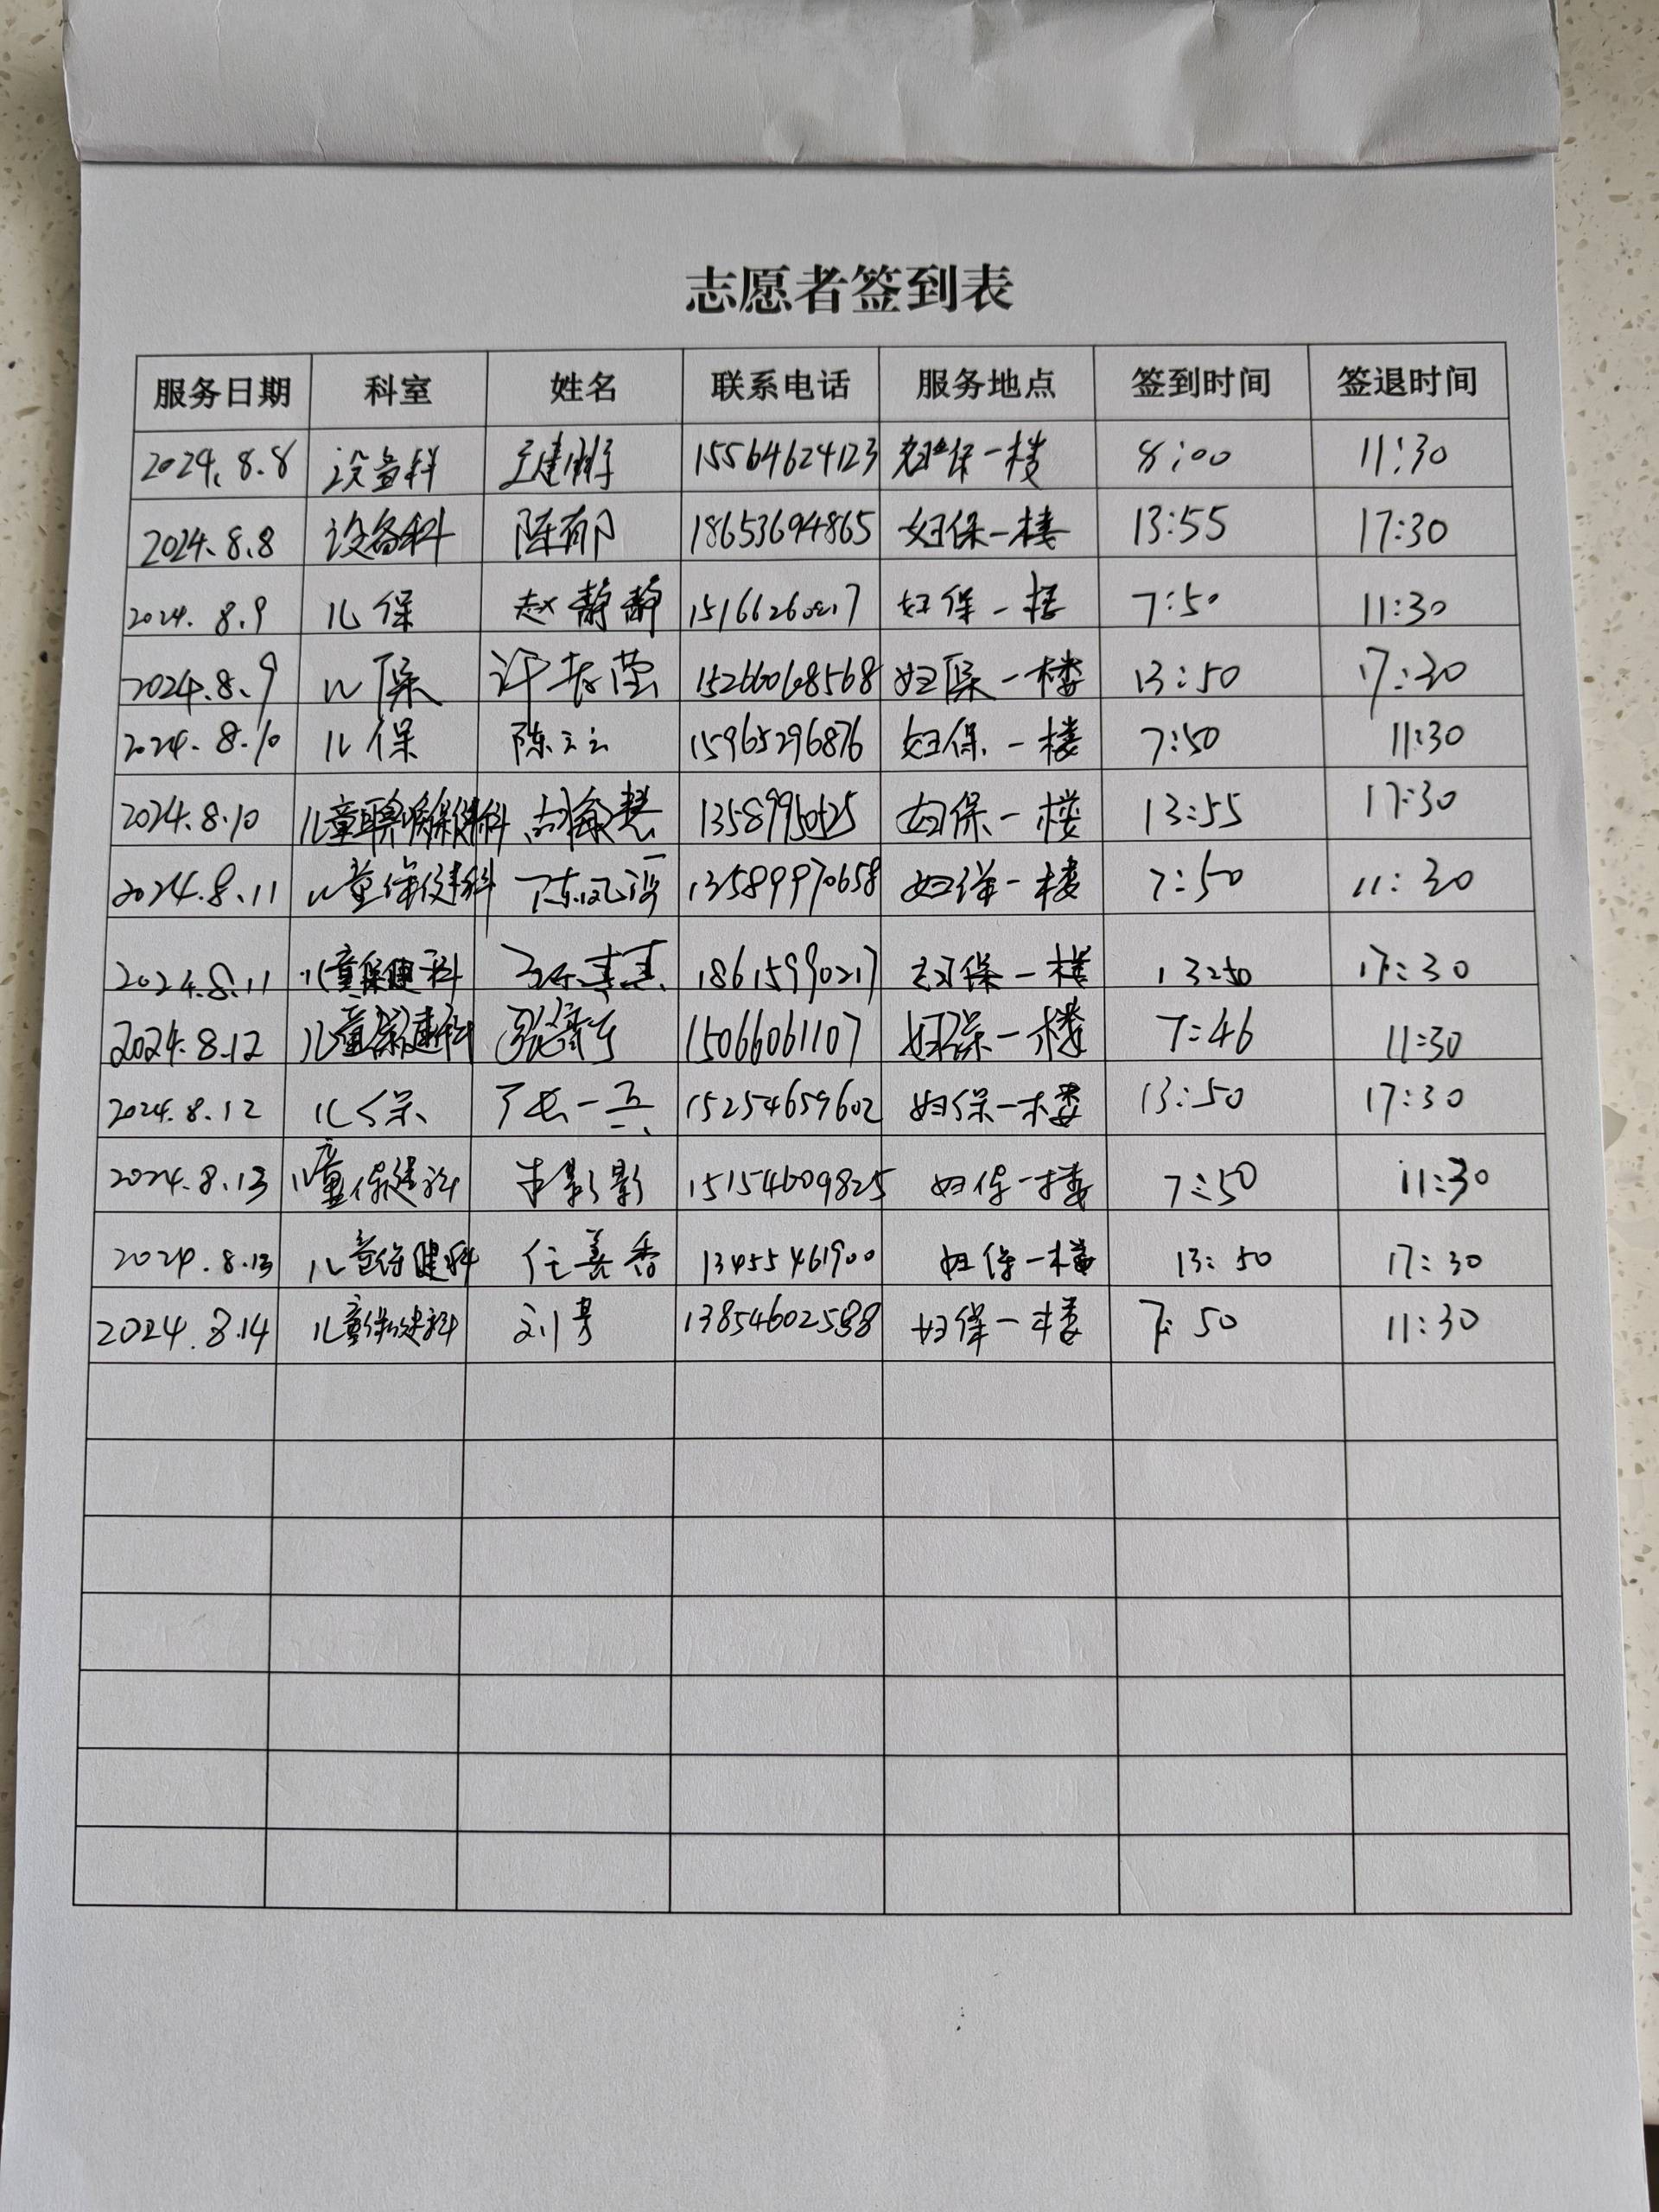 志愿者签到表
服务日期 科室 姓名 联系电话 服务地点 签到时间 签退时间
2024.8.8 设备科 15564624123 妇保一楼 8:00 11:30
2024.8.8 设备科 陈郁 18653694865 妇保一楼 13:55 17:30
2024.8.9 儿保 赵静静 妇保一楼 7:50 11:30
2024.8.9 儿保 许春莹 15266068568 妇保一楼 13:50 17:30
2024.8.10 儿保 陈云云 15965296876 妇保一楼 7:50 11:30
2024.8.10 胡敏慧 妇保一楼 13:55 17:30
2024.8.11 儿童保健科 13589970658 妇保一楼 7:50 11:30
2024.8.11 儿童保健科 18615990217 妇保一楼 13:50 17:30
2024.8.12 儿童保健科 15066061107 妇保一楼 7:46 11:30
2024.8.12 儿保 15254659602 妇保一楼 13:50 17:30
2024.8.13 儿童保健科 15154609825 妇保一楼 7:50 11:30
2024.8.13 儿童保健科 任善香 13455461900 妇保一楼 13:50 17:30
2024.8.14 儿童保健科 妇保一楼 7:50 11:30